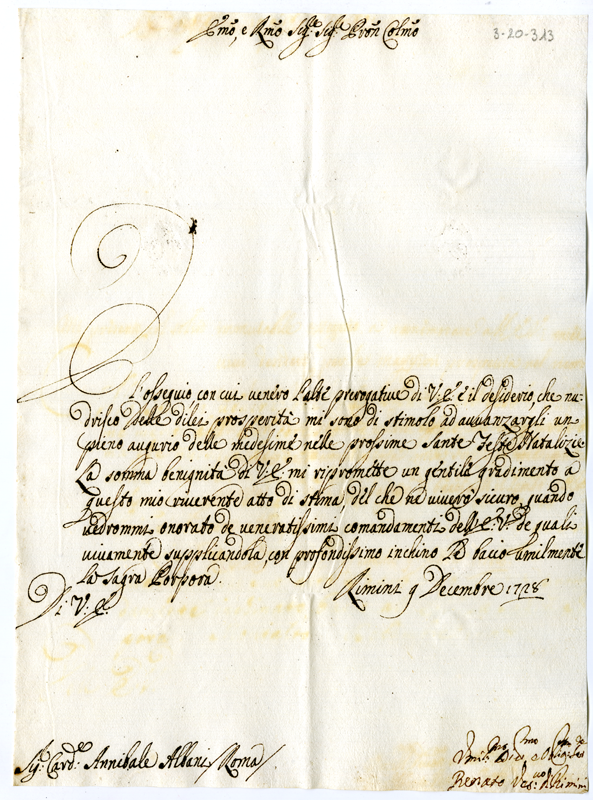 Emo, e Rmo Sigr. Sigr. Pron Colmo
3-20-313
L'osseguio con cui venero l'alte prerogative di V: E: e il desiderio, che nu-
drisco delle dilei prosperità mi sono di stimolo ad avvanzargli un
pieno augurio delle medesime nelle prossime Sante Feste Natalizie
La somma benignità di V: E: mi ripromette un gentile gradimento a
questo mio riverente atto di stima, del che ne viverò sicuro, quando
vedrommi onorato de veneratissimi comandamenti dell' E: V: de quali
vivamente supplicandola, con profondissimo inchino Le bacio umilmente
la Sagra Porpora.
Rimini 9 Decembre 1728
Di V: E:
Sigr. Card.le Annibale Albani / Roma /
Umil.mo Div.mo Oblig.mo
Renato Ves.vo di Rimini